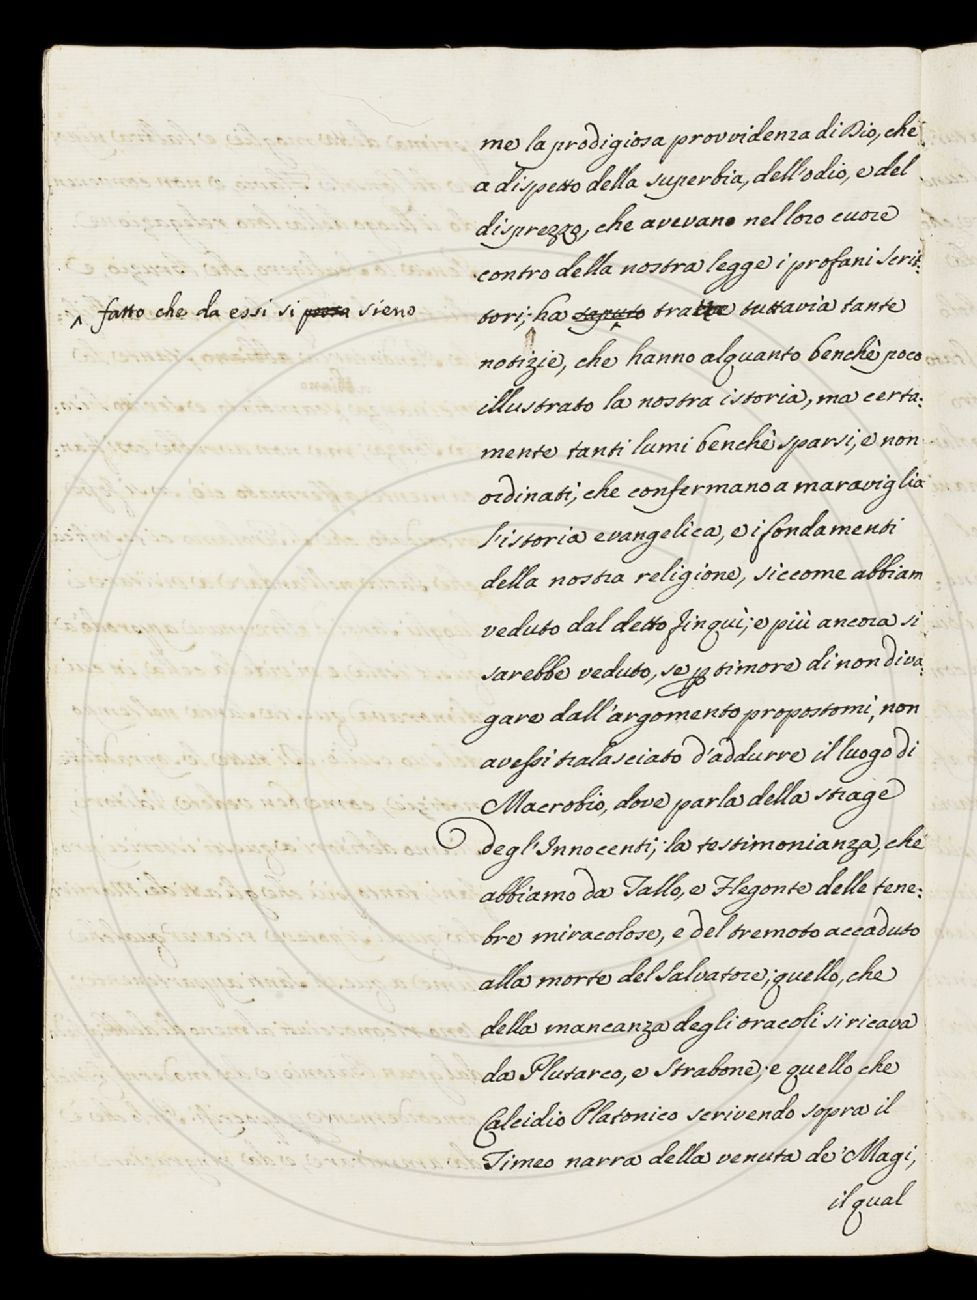 me la prodigiosa provvidenza di Dio, che
a dispetto della superbia, dell'odio, e del
disprezzo, che avevano nel loro cuore
contro della nostra legge i profani Scrit:
^ fatto che da essi si possa sieno
tori; ha saputo tratte tuttavia tante
notizie, che hanno alquanto benchè poco
illustrato la nostra istoria, ma certa:
mente tanti lumi benchè sparsi, e non
ordinati, che confermano a maraviglia
l'istoria evangelica, e i fondamenti
della nostra religione, siccome abbiam
veduto dal detto finquì; e più ancora si
sarebbe veduto, se p timore di non diva:
gare dall'argomento propostomi, non
avessi tralasciato d'addurre il luogo di
Macrobio, dove parla della strage
degl'Innocenti; la testimonianza, che
abbiamo da Tallo, e Flegonte delle tene:
bre miracolose, e del tremoto accaduto
alla morte del Salvatore; quello, che
della mancanza degli oracoli si ricava
da Plutarco, e Strabone; e quello che
Calcidio Platonico scrivendo sopra il
Timeo narra della venuta de' Magi,
il qual